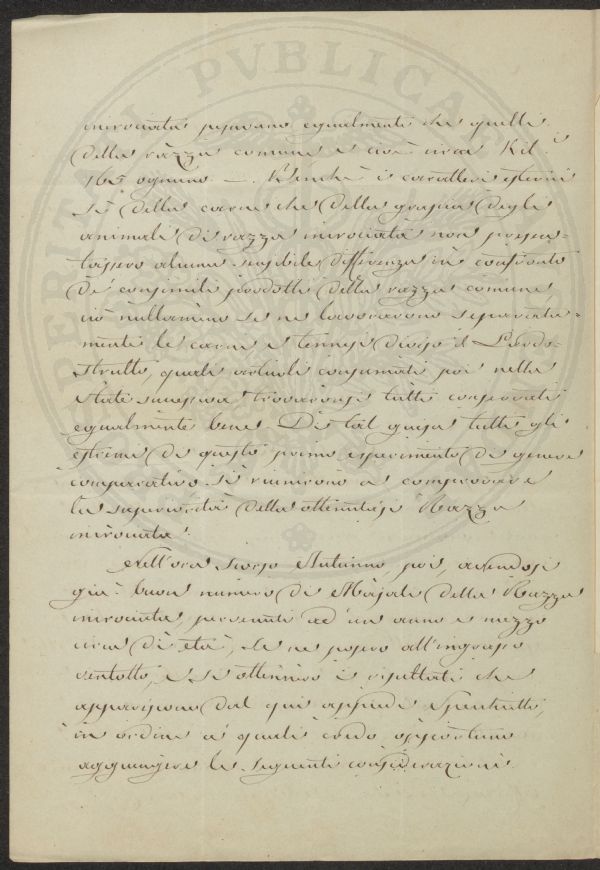 incrociata pesavano egualmente che quelle
della razza comune e cioè circa Kil.i
165 ognuno —. Benchè i caratteri esterni
sì della carne che della grascia degli
animali di razza incrociata non presen-
tassero alcuna sensibile differenza in confronto
dei consimili prodotti della razza comune,
ciò nullameno se ne lavorarono separata-
mente le carni, e tennesi diviso il Lardo-
strutto, quali articoli consumati poi nella
state successiva trovaronsi tutti conservati
egualmente bene. Di tal guisa tutti gli
estremi di questo primo esperimento di genere
comparativo si riunirono a comprovare
la superiorità della ottenutasi Razza
incrociata.
Nell'ora scorso Autunno, poi, avendosi
già buon numero di Majali della Razza
incrociata, pervenuti ad un anno e mezzo
circa di età, se ne posero all'ingrasso
ventotto, e si ottennero i risultati che
appariscono dal qui appiedi Specchietto,
in ordine a' quali credo opportuno
aggiungere le seguenti considerazioni.